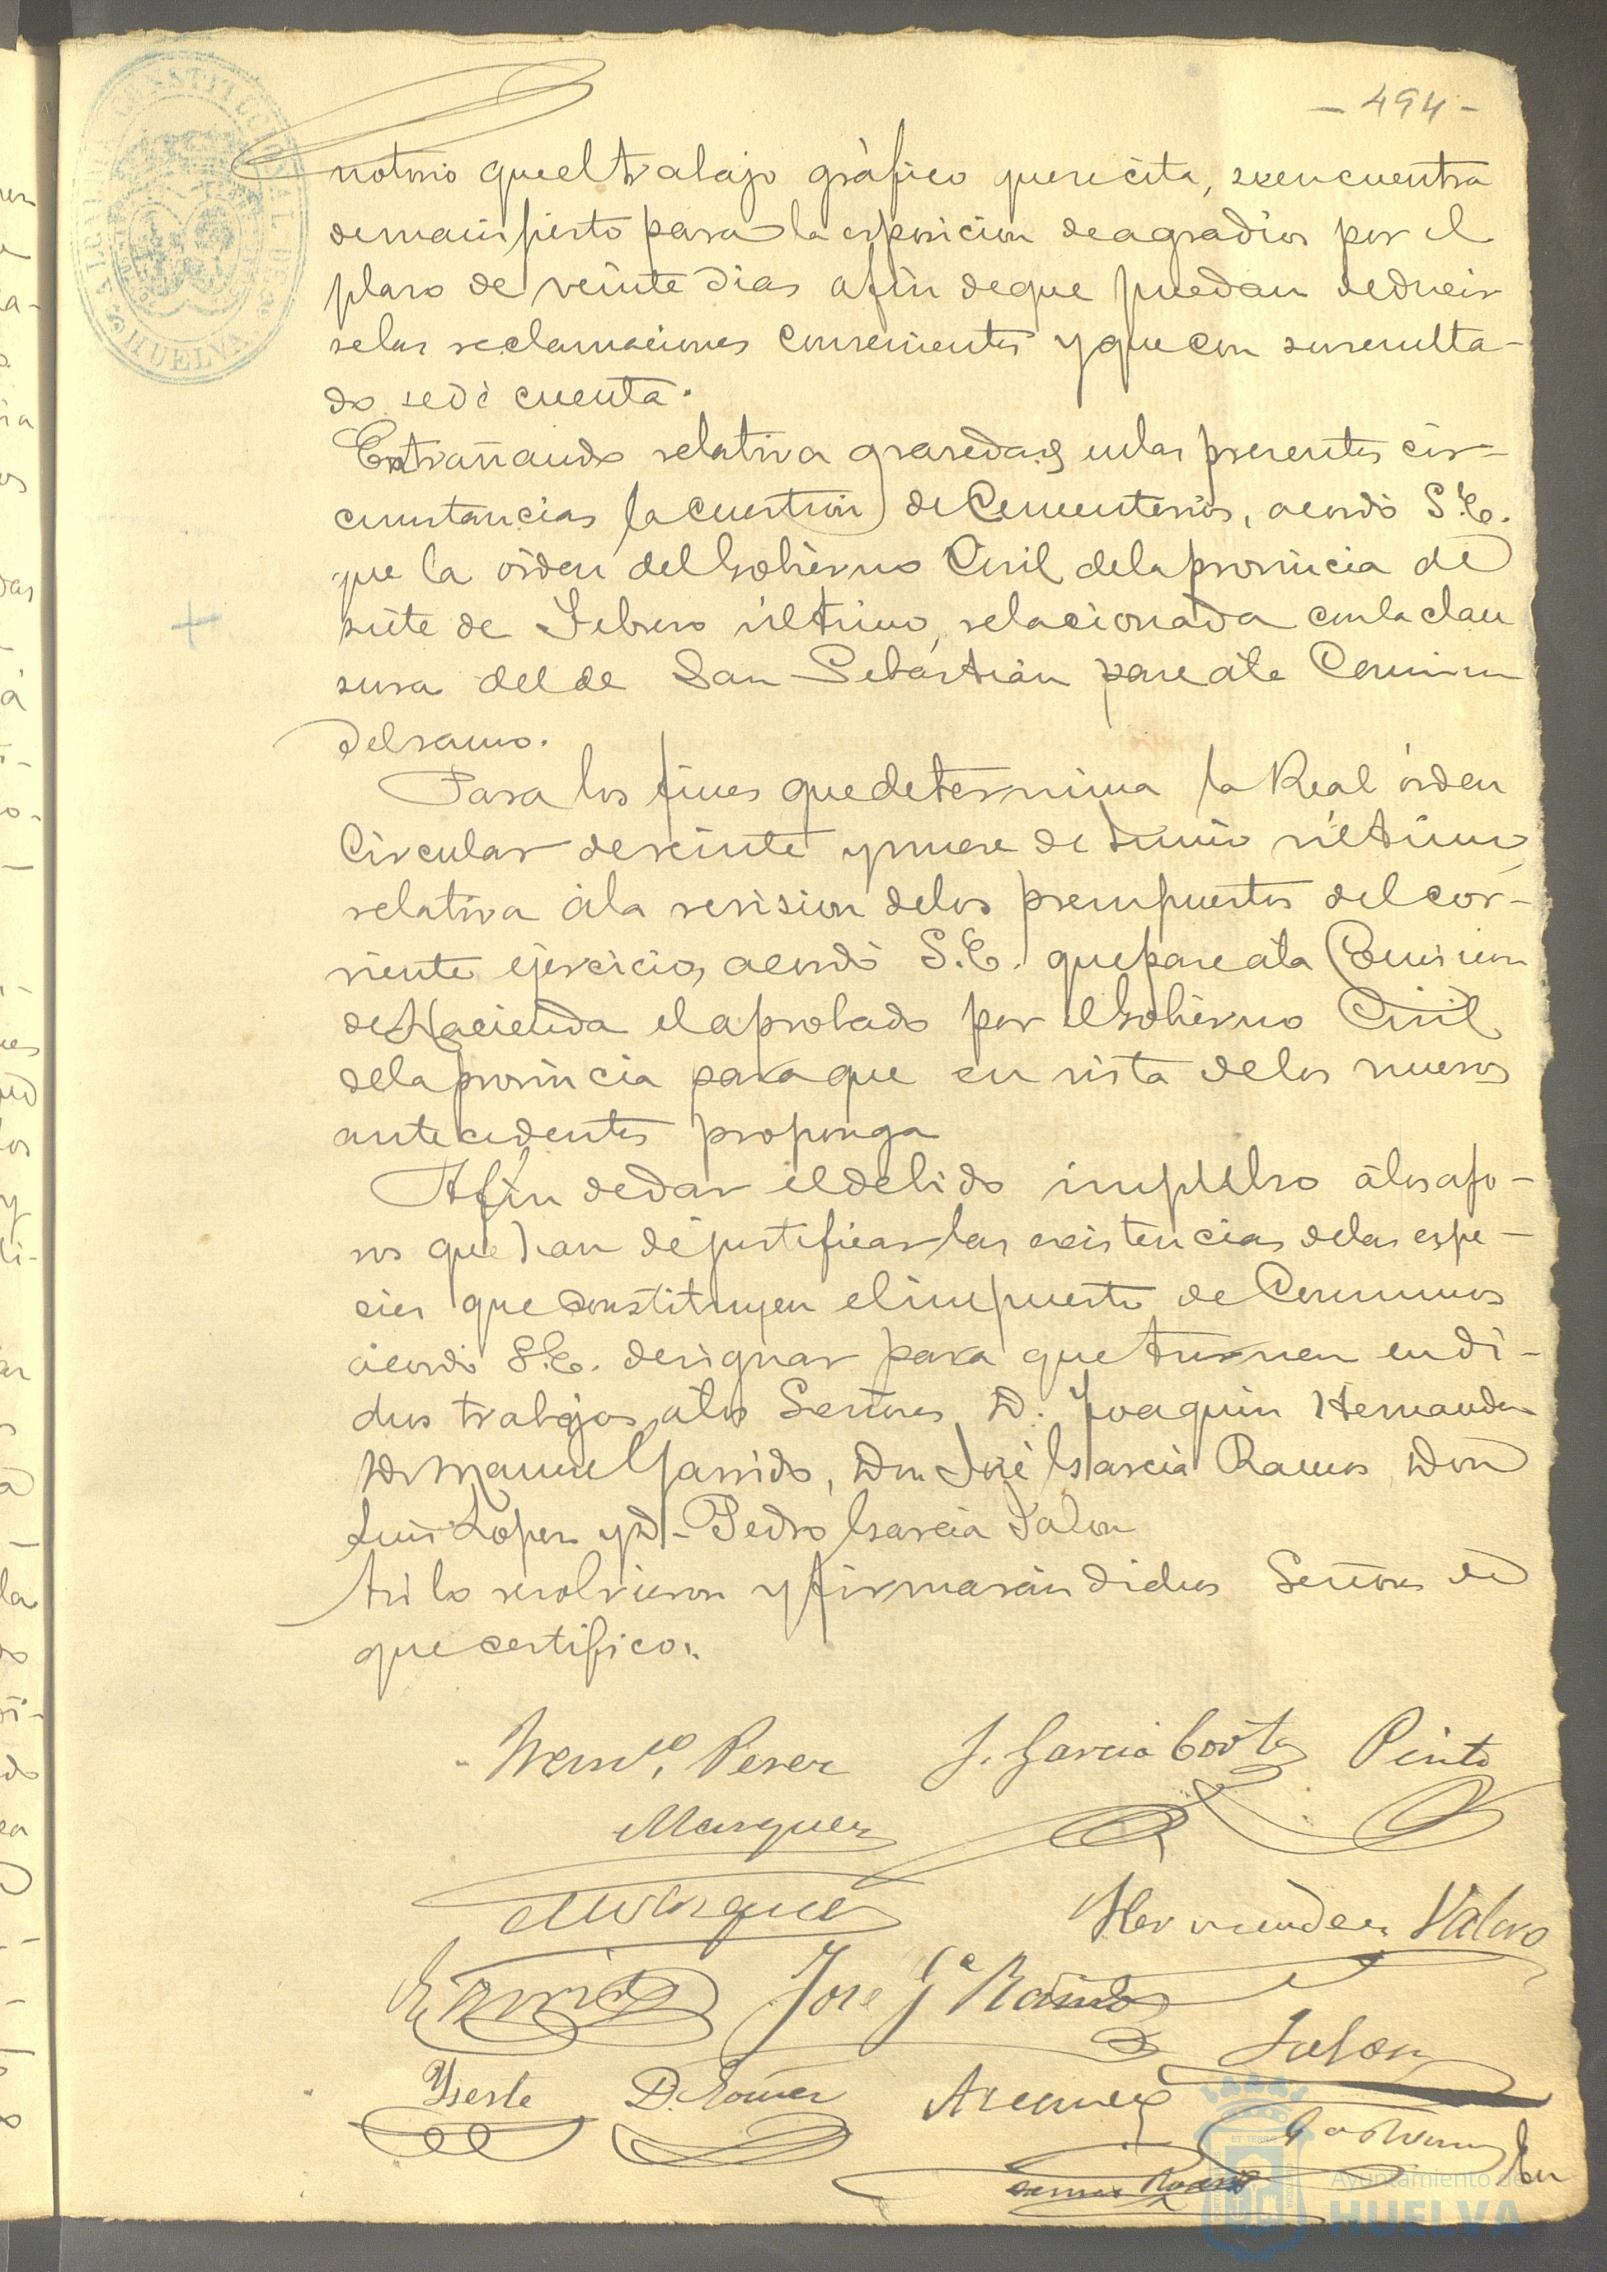 - 494 -
ALCALDIA CONSTITUCIONAL DE HUELVA
notorio que el trabajo gráfico que se cita, se encuentra
de manifiesto para la esposicion de agravios por el
plazo de veinte dias afin de que puedan deducir
se las reclamaciones convenientes y que con su resulta-
do se dé cuenta.
Entrañando relativa gravedad en las presentes cir-
cunstancias la cuestion de Cementerios, acordó S.E.
que la orden del Gobierno Civil de la provincia de
siete de Febrero último, relacionada con la clau
sura del de San Sebastián pase á la Comision
del ramo.
Para los fines que determina la Real órden
Circular de veinte y nueve de Junio último
relativa á la revision de los presupuestos del cor-
riente ejercicio, acordó S.E. que pase á la Comision
de Hacienda el aprobado por el Gobierno Civil
de la provincia para que en vista de los nuevos
antecedentes proponga
Afin de dar el debido impulso á los afo-
ros que han de justificar las existencias de las espe-
cies que constituyen el impuesto de Consumos
acordó S.E. designar para que turnen en di-
chos trabajos á los Señores D. Joaquin Hernandez
D. Manuel Garrido, Don José Garcia Ramos Don
Luis Lopez y D. Pedro Garcia Jalon
Asi lo resolvieron y firmarán dichos Señores de
que certifico.
Wenc.lo Perez J. Garcia Cortes Pinto
Marquez
Hernandez Valero
José G.a Ramos
Jalon
Yseste D. Gomez
Ayuntamiento de
HUELVA